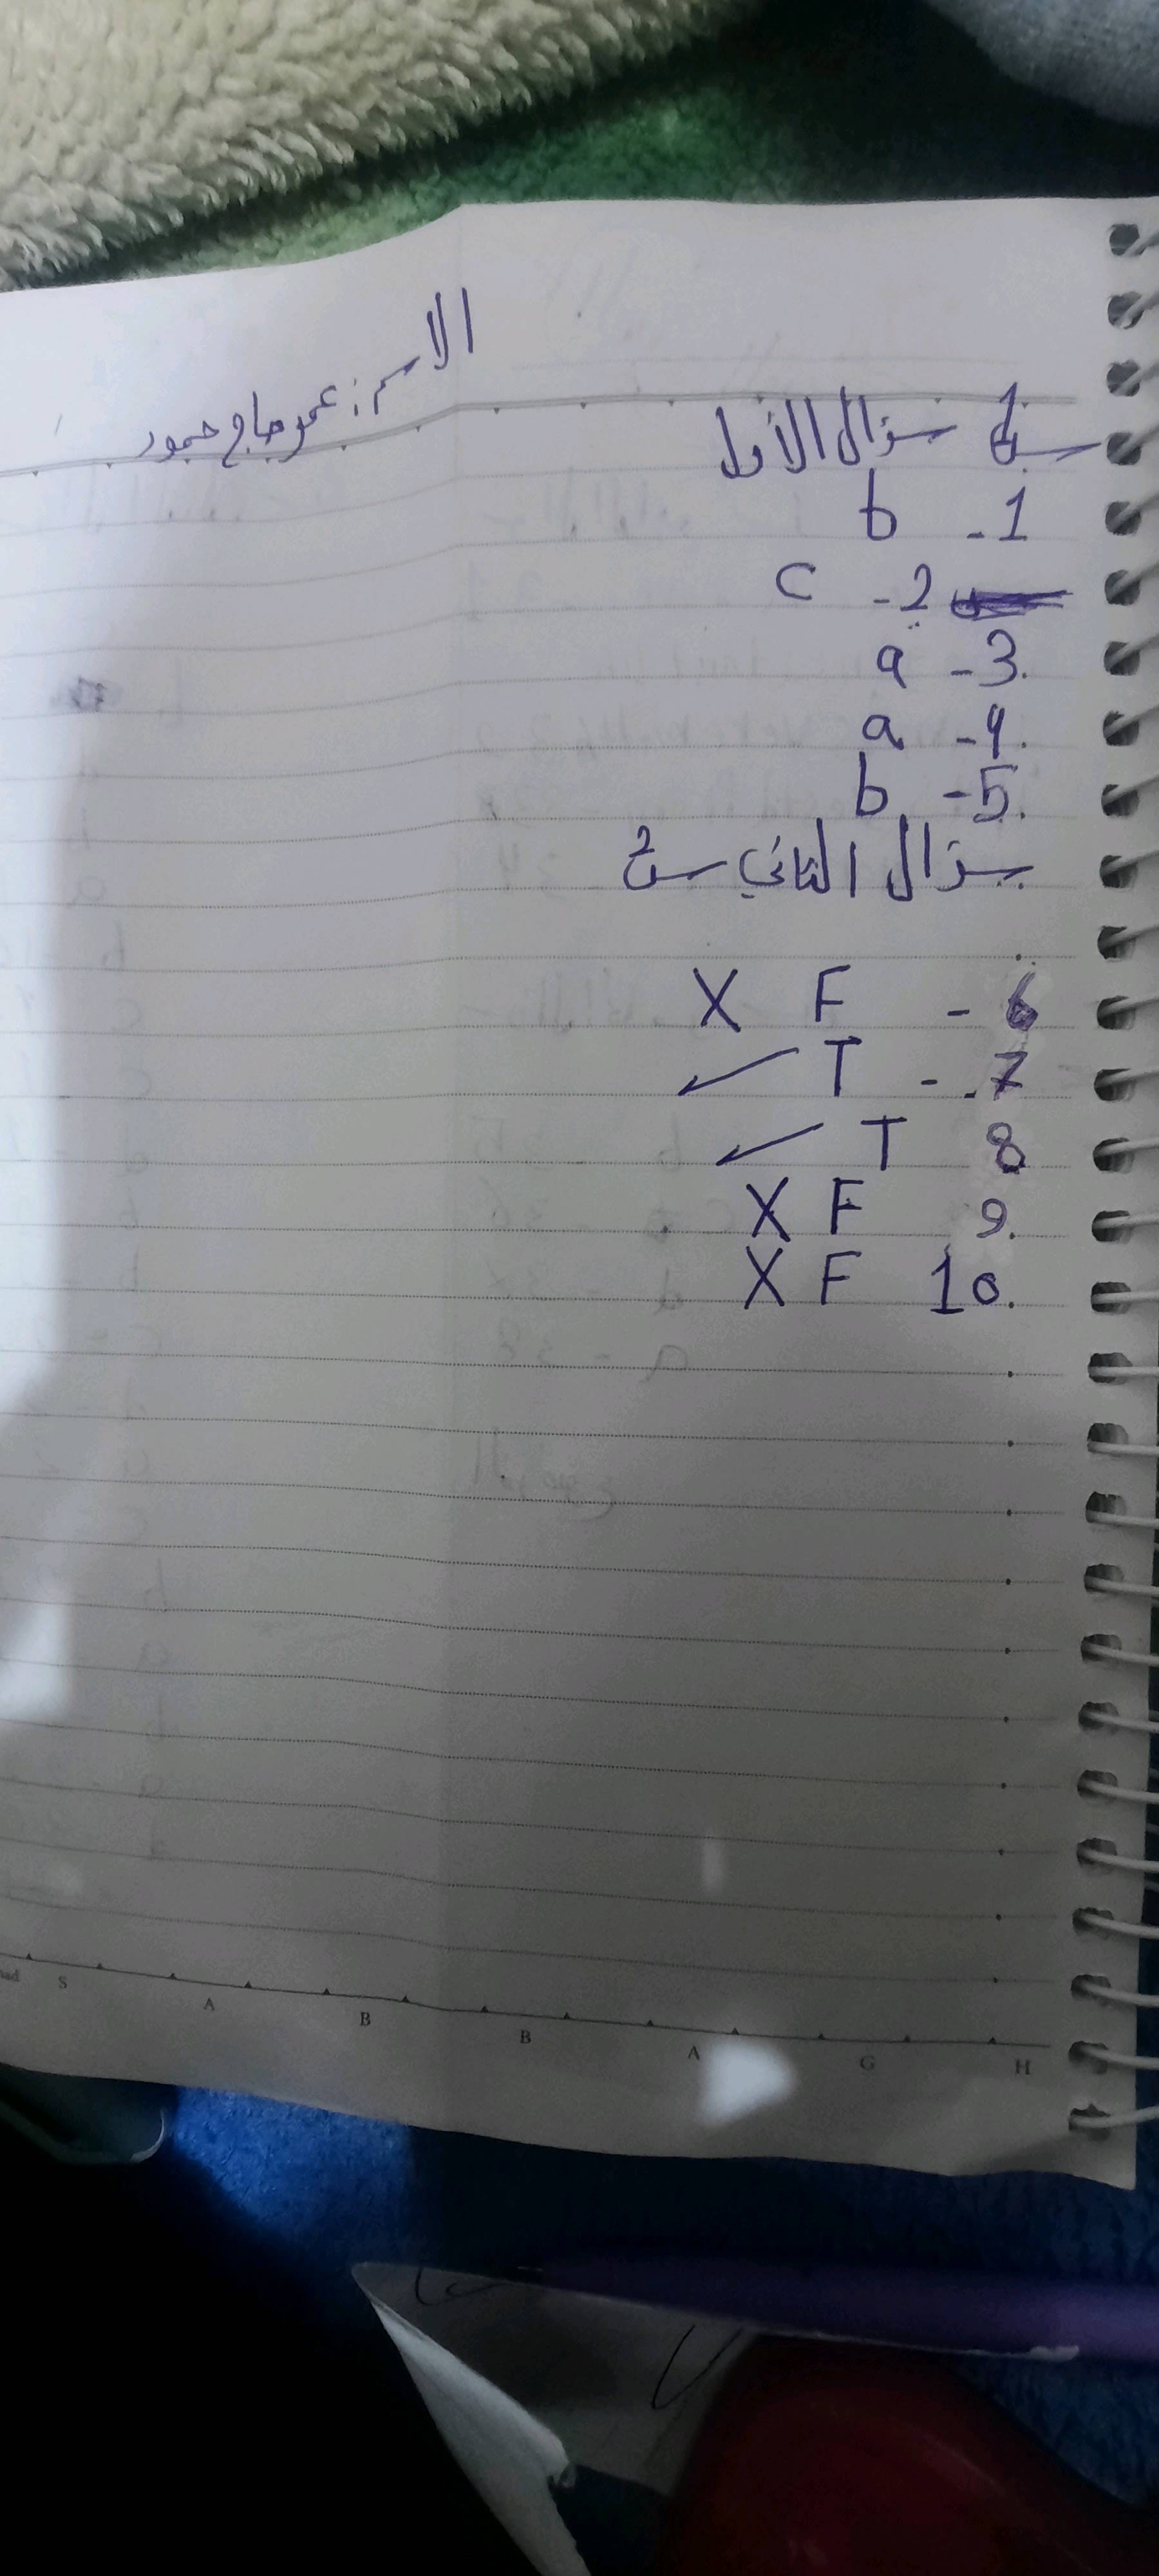 الاسم: عمر حاج حمود
س1 سؤال الأول
1- b
2- c
3- a
4- a
5- b
سؤال الثاني س2
6- F X
7- T ✓
8 T ✓
9 F X
10 F X
S A B B A G H